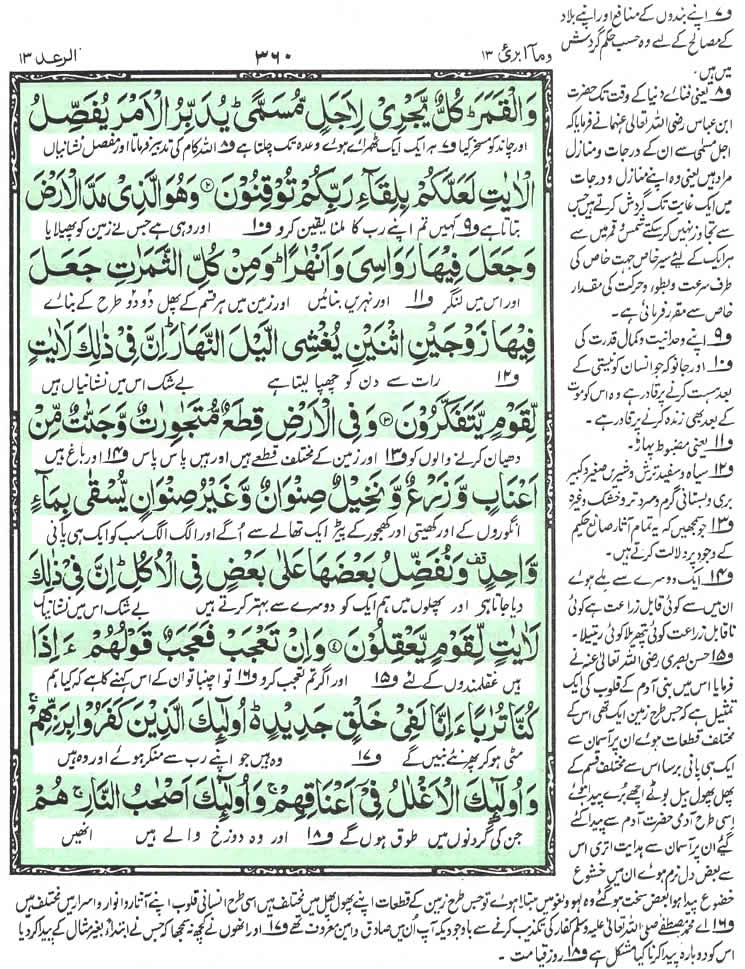 وما ابرئ ۱۳
۳۶۰
الرعد ۱۳
وَالْقَمَرَ ؕ كُلٌّ یَّجْرِیْ لِاَجَلٍ مُّسَمًّی ؕ یُدَبِّرُ الْاَمْرَ یُفَصِّلُ
اور چاند کو مسخر کیا و۷ ہر ایک ایک ٹھہرائے ہوئے وعدہ تک چلتا ہے و۸ اللہ کام کی تدبیر فرماتا اور مفصل نشانیاں
الْاٰیٰتِ لَعَلَّكُمْ بِلِقَآءِ رَبِّكُمْ تُوْقِنُوْنَ ۝۲ وَهُوَ الَّذِیْ مَدَّ الْاَرْضَ
بتاتا ہے و۹ کہیں تم اپنے رب کا ملنا یقین کرو و۱۰ اور وہی ہے جس نے زمین کو پھیلایا
وَجَعَلَ فِیْهَا رَوَاسِیَ وَاَنْهٰرًا ؕ وَمِنْ كُلِّ الثَّمَرٰتِ جَعَلَ
اور اس میں لنگر و۱۱ اور نہریں بنائیں اور زمین میں ہر قسم کے پھل دو دو طرح کے بنائے
فِیْهَا زَوْجَیْنِ اثْنَیْنِ یُغْشِی الَّیْلَ النَّهَارَ ؕ اِنَّ فِیْ ذٰلِكَ لَاٰیٰتٍ
و۱۲ رات سے دن کو چھپا لیتا ہے بے شک اس میں نشانیاں ہیں
لِّقَوْمٍ یَّتَفَكَّرُوْنَ ۝۳ وَفِی الْاَرْضِ قِطَعٌ مُّتَجٰوِرٰتٌ وَّجَنّٰتٌ مِّنْ
دھیان کرنے والوں کو و۱۳ اور زمین کے مختلف قطعے ہیں اور ہیں پاس پاس و۱۴ اور باغ ہیں
اَعْنَابٍ وَّزَرْعٌ وَّنَخِیْلٌ صِنْوَانٌ وَّغَیْرُ صِنْوَانٍ یُّسْقٰی بِمَآءٍ
انگوروں کے اور کھیتی اور کھجور کے پیڑ ایک تھالے سے اُگے اور الگ الگ سب کو ایک ہی پانی
وَّاحِدٍ ۫ وَنُفَضِّلُ بَعْضَهَا عَلٰی بَعْضٍ فِی الْاُكُلِ ؕ اِنَّ فِیْ ذٰلِكَ
دیا جاتا ہے اور پھلوں میں ہم ایک کو دوسرے سے بہتر کرتے ہیں بے شک اس میں نشانیاں
لَاٰیٰتٍ لِّقَوْمٍ یَّعْقِلُوْنَ ۝۴ وَاِنْ تَعْجَبْ فَعَجَبٌ قَوْلُهُمْ ءَاِذَا
ہیں عقلمندوں کے لئے و۱۵ اور اگر تم تعجب کرو و۱۶ تو اچنبا تو ان کے اس کہنے کا ہے کہ کیا ہم
كُنَّا تُرٰبًا ءَاِنَّا لَفِیْ خَلْقٍ جَدِیْدٍ ؕ اُولٰٓىِٕكَ الَّذِیْنَ كَفَرُوْا بِرَبِّهِمْ ۚ
مٹی ہو کر پھر نئے بنیں گے و۱۷ وہ ہیں جو اپنے رب سے منکر ہوئے اور وہ ہیں
وَاُولٰٓىِٕكَ الْاَغْلٰلُ فِیْۤ اَعْنَاقِهِمْ ۚ وَاُولٰٓىِٕكَ اَصْحٰبُ النَّارِ ۚ هُمْ
جن کی گردنوں میں طوق ہوں گے و۱۸ اور وہ دوزخ والے ہیں انھیں
و۷ اپنے بندوں کے منافع اور اپنے بلاد
کے مصالح کے لیے وہ حسب حکم گردش
میں ہیں۔
و۸ یعنی فنائے دنیا کے وقت تک حضرت
ابن عباس رضی اللہ تعالیٰ عنہما نے فرمایا کہ
اجل مسمّٰی سے ان کے درجات و منازل
مراد ہیں یعنی وہ اپنے منازل و درجات
میں ایک غایت تک گردش کرتے ہیں جس
سے تجاوز نہیں کر سکتے شمس و قمر میں سے
ہر ایک کے لیئے سیر خاص جہت خاص کی
طرف سرعت و بطوء و حرکت کی مقدار
خاص سے مقرر فرمائی ہے۔
و۹ اپنے وحدانیت و کمال قدرت کی
و۱۰ اور جانو کہ جو انسان کو نیستی کے
بعد ہست کرنے پر قادر ہے وہ اس کو موت
کے بعد بھی زندہ کرنے پر قادر ہے۔
و۱۱ یعنی مضبوط پہاڑ۔
و۱۲ سیاہ و سفید ترش و شیریں صغیر و کبیر
بری و بستانی گرم و سرد تر و خشک وغیرہ
و۱۳ جو سمجھیں کہ یہ تمام آثار صانع حکیم
کے وجود پر دلالت کرتے ہیں۔
و۱۴ ایک دوسرے سے ملے ہوئے
ان میں سے کوئی قابل زراعت ہے کوئی
ناقابل زراعت کوئی پتھریلا کوئی ریتیلا۔
و۱۵ حسن بصری رضی اللہ تعالیٰ عنہ نے
فرمایا اس میں بنی آدم کے قلوب کی ایک
تمثیل ہے کہ جس طرح زمین ایک تھی اس کے
مختلف قطعات ہوئے ان پر آسمان سے
ایک ہی پانی برسا اس سے مختلف قسم کے
پھل پھول بیل بوٹے اچھے برے پیدا ہوئے
اسی طرح آدمی حضرت آدم سے پیدا کئے
گئے ان پر آسمان سے ہدایت اتری اس
سے بعض دل نرم ہوئے ان میں خشوع
خضوع پیدا ہوا بعض سخت ہو گئے وہ لہو و لغو میں مبتلا ہوئے تو جس طرح زمین کے قطعات اپنے پھول پھل میں مختلف ہیں اسی طرح انسانی قلوب اپنے آثار و انوار و اسرار میں مختلف ہیں
و۱۶ اے محمد مصطفٰے صلی اللہ تعالیٰ علیہ وسلم کفار کی تکذیب کرنے سے باوجودیکہ آپ اُن میں صادق و امین معروف تھے و۱۷ اور انھوں نے کچھ نہ سمجھا کہ جس نے ابتداءً بغیر مثال کے پیدا کر دیا
اس کو دوبارہ پیدا کرنا کیا مشکل ہے و۱۸ روز قیامت ۔